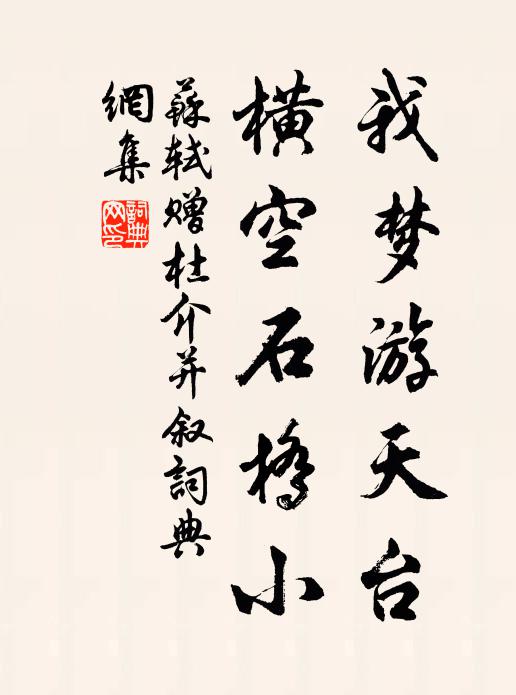 我梦游天台
横空石桥小
蘇軾赠杜介并叙詞典
網集
詞典
网印